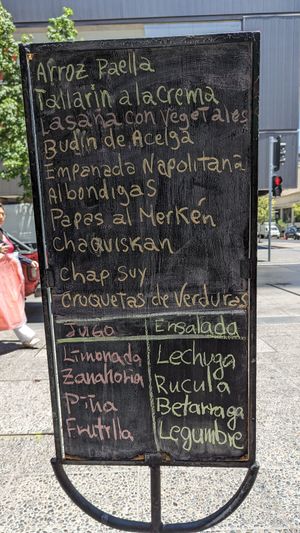 Arroz Paella
Tallarin a la Crema
Lasaña con Vegetales
Budín de Acelga
Empanada Napolitana
Albondigas
Papas al Merkén
Chaquiskan
Chap Suy
Croquetas de Verduras
Jugo
Ensalada
Limonada
Lechuga
Zanahoria
Rucula
Piña
Betarraga
Frutilla
Legumbre